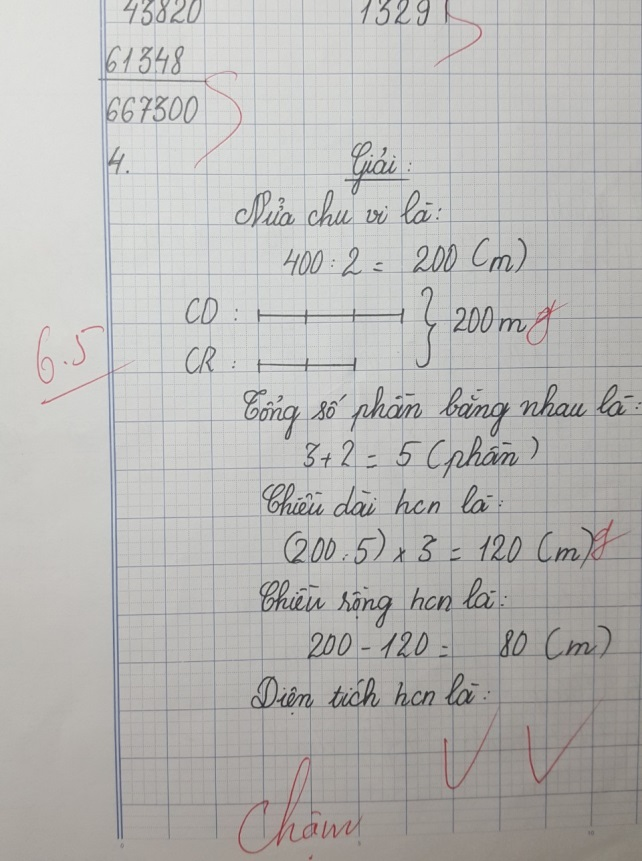 43820
1329
61348
667300
4.
Giải:
Nửa chu vi là:
400 : 2 = 200 (m)
CD :
200m
6.5
CR :
Tổng số phần bằng nhau là:
3 + 2 = 5 (phần)
Chiều dài hcn là:
(200 : 5) × 3 = 120 (m)
Chiều rộng hcn là:
200 - 120 = 80 (m)
Diện tích hcn là:
Chậm